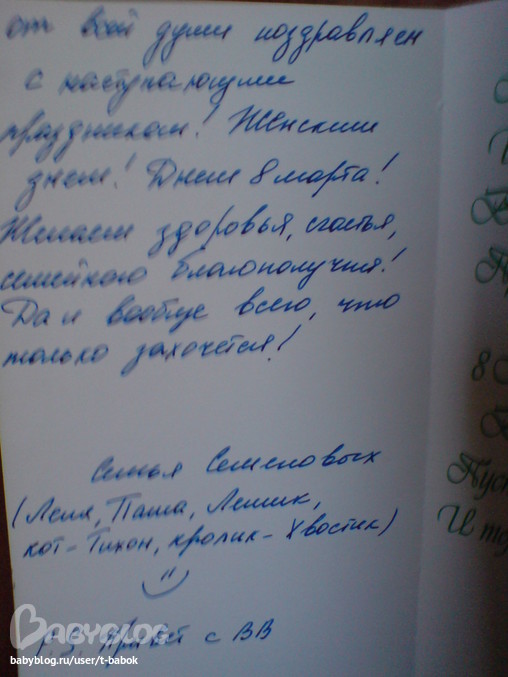 от всей души поздравляем
с наступающим
праздником! Женским
днем! Днем 8 марта!
Желаем здоровья, счастья,
семейного благополучия!
Да и вообще всего, что
только захочется!
Семья Семеновых
(Леня, Паша, Лешик,
кот-Тихон, кролик-Хвостик)
P.S. Привет с ВВ
BABYBLOG
babyblog.ru/user/t-babok
8
Пуст
И то